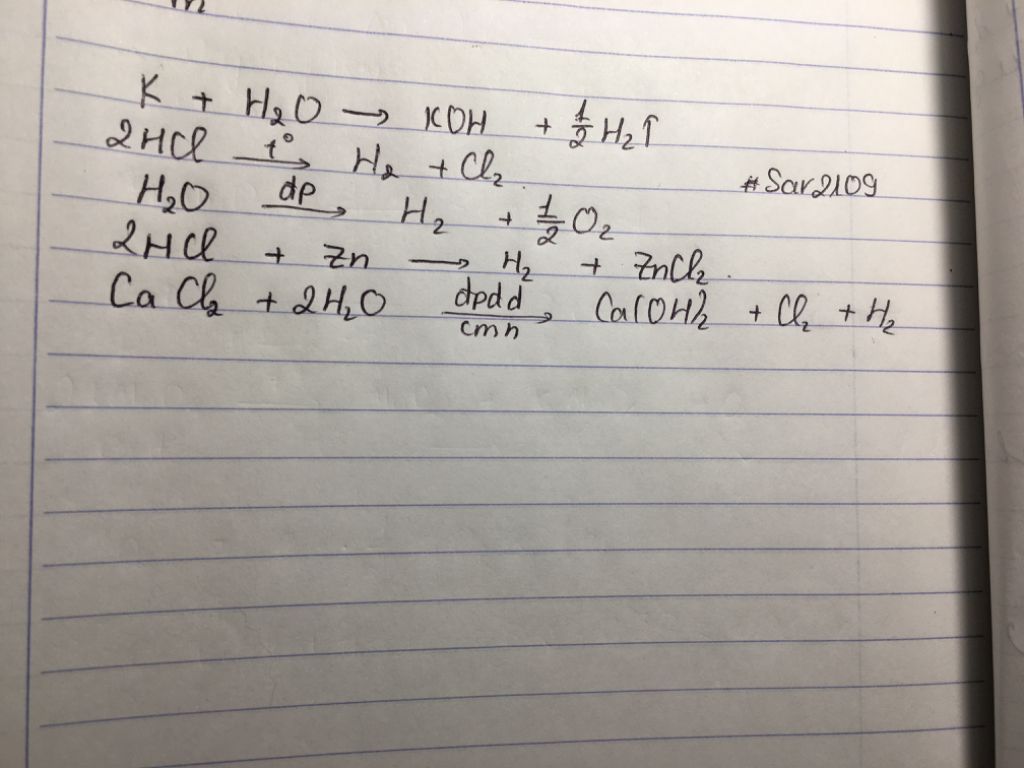 K + H₂O → KOH + 1/2 H₂↑
2HCl —t°→ H₂ + Cl₂
#Sar2109
H₂O —dp→ H₂ + 1/2 O₂
2HCl + Zn → H₂ + ZnCl₂.
CaCl₂ + 2H₂O —dpdd/cmn→ Ca(OH)₂ + Cl₂ + H₂